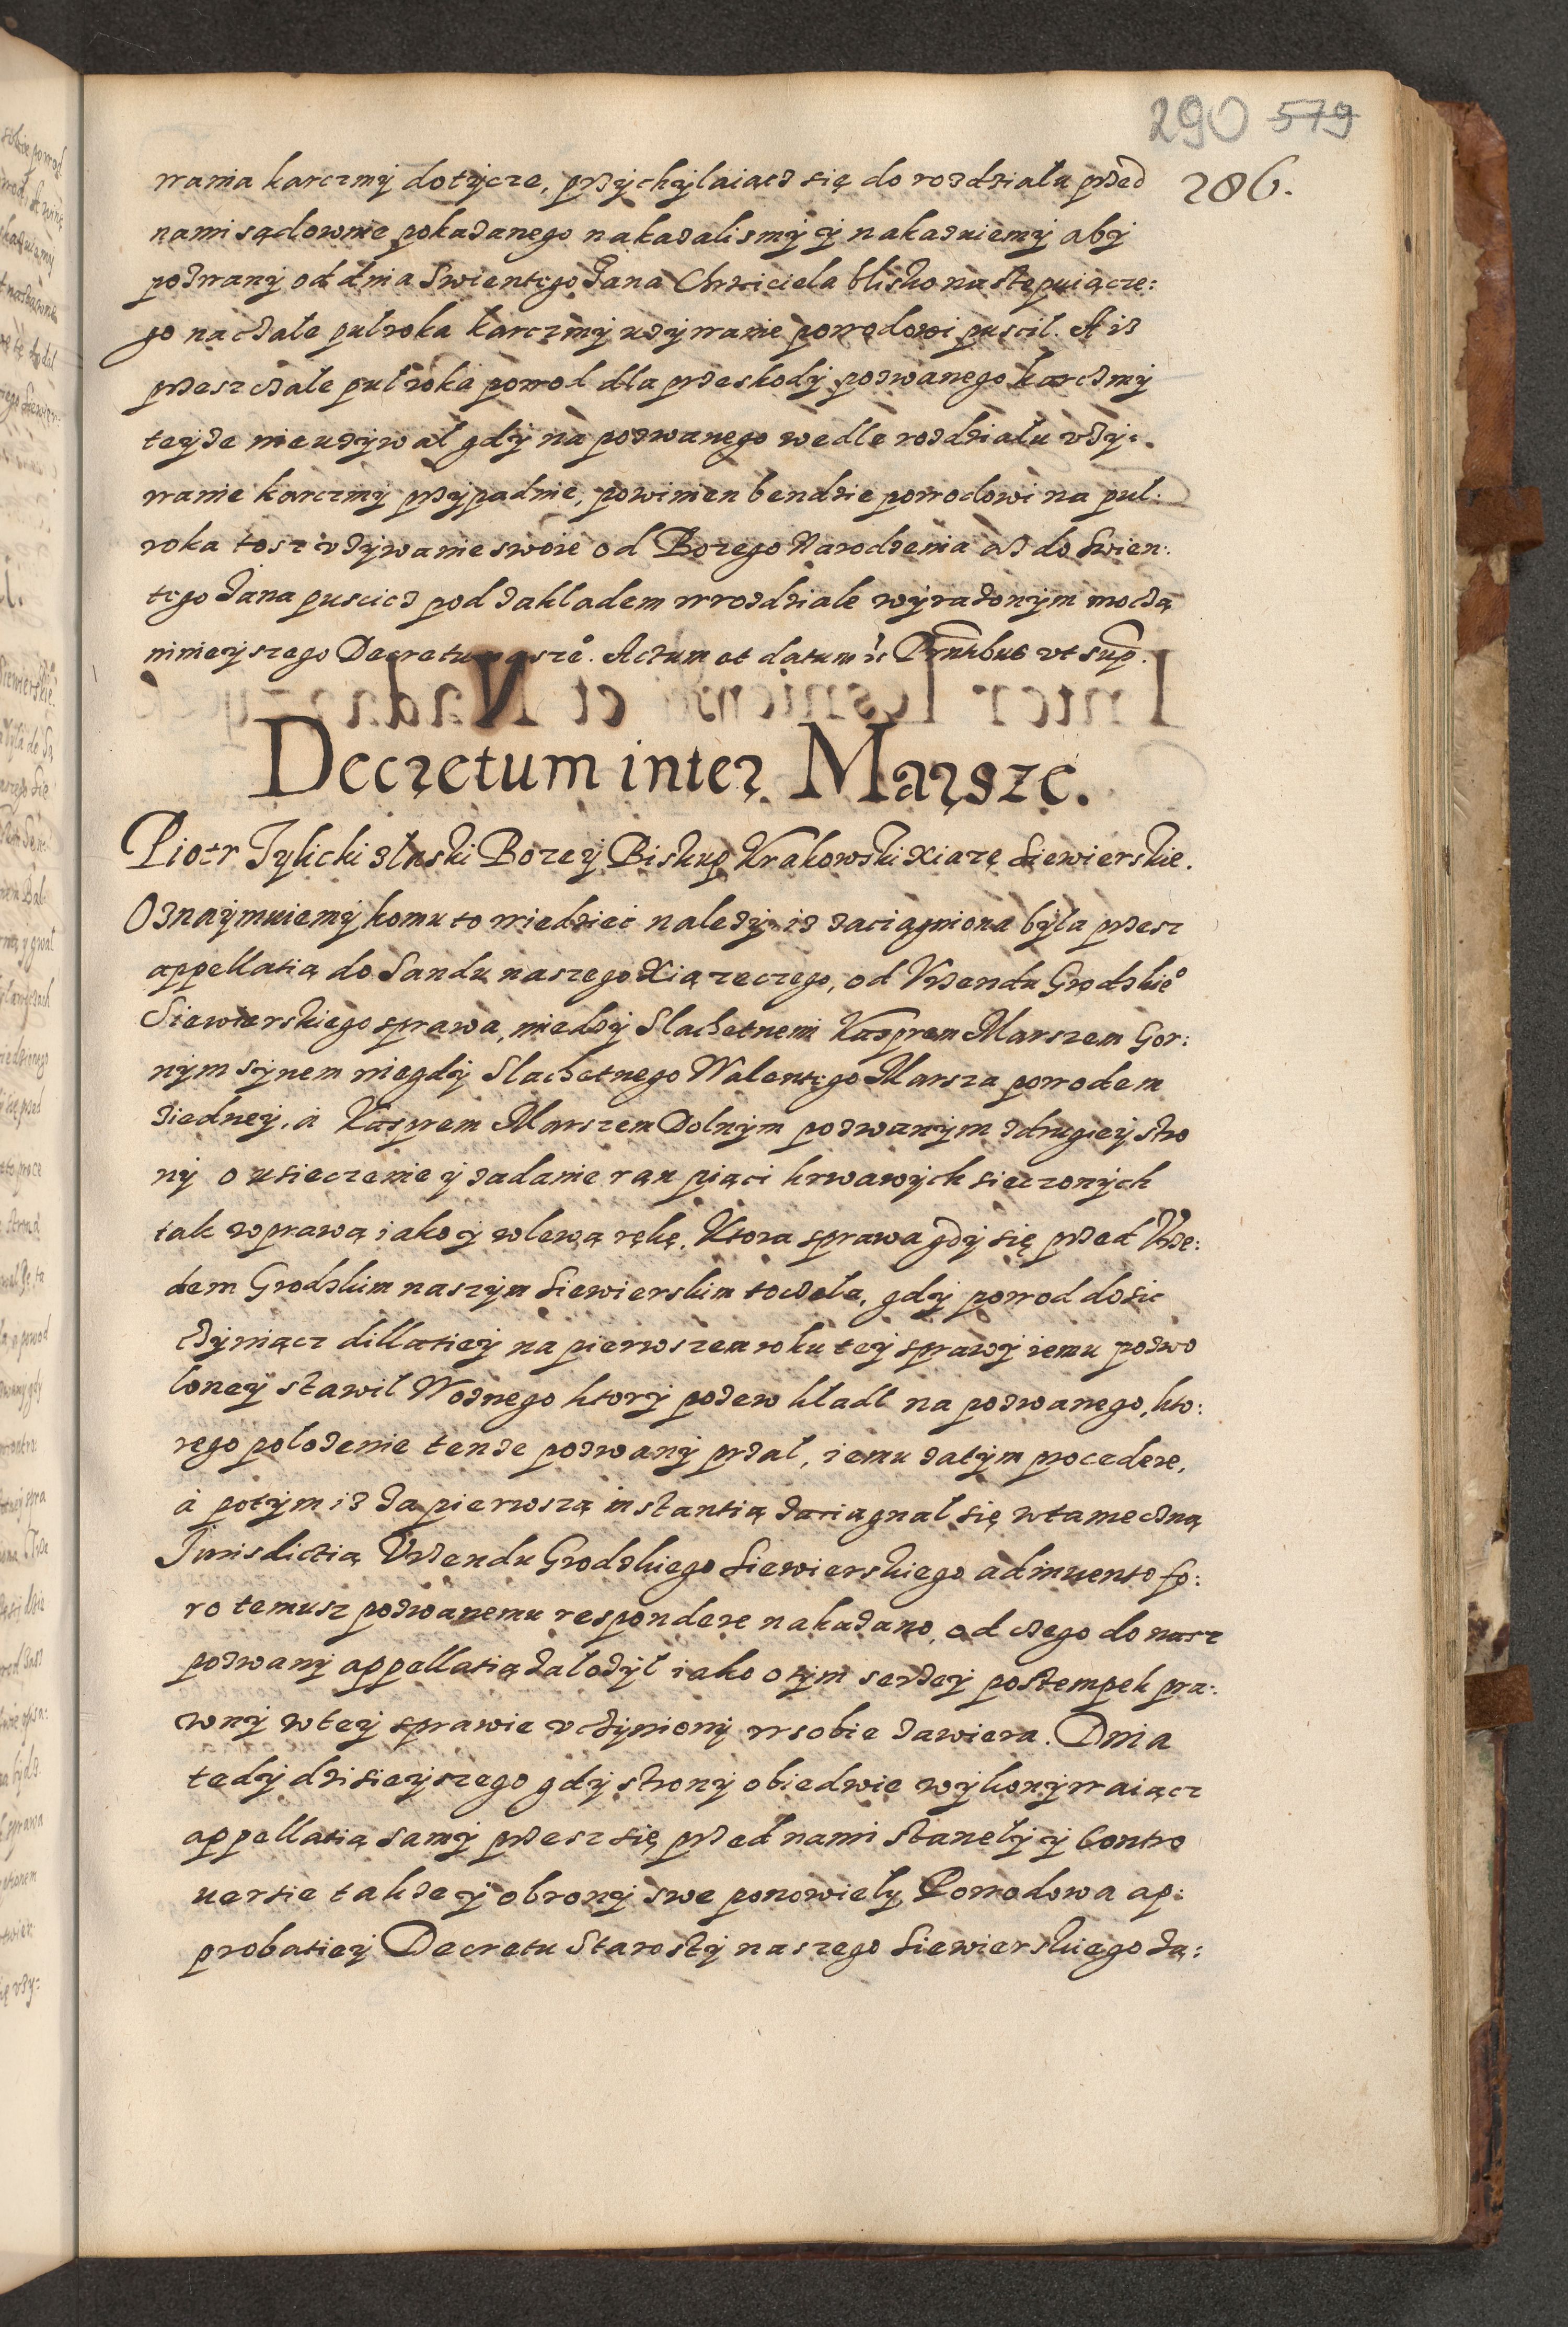 290 579
286.
wania karczmÿ dotÿcze, przÿchÿlaiacz się do rozdziału przed
nami sądownie pokazanego nakazalismÿ ÿ nakazuiemÿ abÿ
pozwanÿ od dnia Swientego Jana Chrziciela blisko następuiącze:
go na czałe pułroka karczmÿ uzÿwanie powodowi puscił. A iz
przesz czałe pułroka powod dla przeskodÿ pozwanego karczmÿ
teÿze nieuzÿwał gdÿ na pozwanego wedle rozdziału vzÿ:
wanie karczmÿ przÿpadnie, powinien bendzie powodowi na puł:
roka tosz vzÿwanie swoie od Bozego Narodzenia az do Swien:
tego Jana puscicz pod zakladem w rozdziale wÿrazonÿm moczą
ninieÿszego Decretu nasze⁰. Actum et datum ir Prntibus vt sup.
Decretum inter Marsze.
Piotr Tÿlicki z łaski Bozeÿ Biskup Krakowski xiązę Siewierskie.
Oznaÿmuiemÿ komu to wiedziec nalezÿ iz zaciągniona bÿla przesz
appellatią do Sandu naszego Xiązeczego, od Vrzendu Grodzkie⁰
Siewierskiego sprawa, miedzÿ Slachetnemi Kasprem Marszem Gor:
nÿm sÿnem niegdÿ Slachetnego Walentego Marsza powodem
ziedneÿ, à Kasprem Marszem Dolnÿm pozwanÿm zdrugieÿ stro
nÿ o usieczenie ÿ zadanie ran piąci krwawÿch sieczonÿch
tak wprawą iako ÿ wlewą rękę. Ktora sprawa gdÿ się przed Vrze:
dem Grodzkim naszÿm Siewierskim toczeła, gdÿ powod dosic
czÿniącz dillatieÿ na pierwszem roku teÿ sprawÿ iemu pozwo
loneÿ stawił Woznego ktorÿ pozew kładł na pozwanego, kto:
rego polozenie tenze pozwanÿ przał, iemu zatÿm procedere,
à potÿm iz za pierwszą instantią zaciagnał się wtameczną
Jurisdictią Vrzendu Grodzkiego Siewierskiego adinuento fo:
ro temusz pozwanemu respondere nakazano, od czego do nasz
pozwanÿ appellatią załozÿł iako o tÿm serzeÿ postempek pra:
wnÿ wteÿ sprawie vczÿnionÿ wsobie zawiera. Dnia
tedÿ dzisieÿszego gdÿ stronÿ obiedwie wÿkonÿwaiącz
appellatią samÿ przesz się przed nami stanełÿ ÿ Contro
uersie takze ÿ obronÿ swe ponowiełÿ, Powodowa ap:
probatieÿ Decretu Starostÿ naszego Siewierskiego zą: